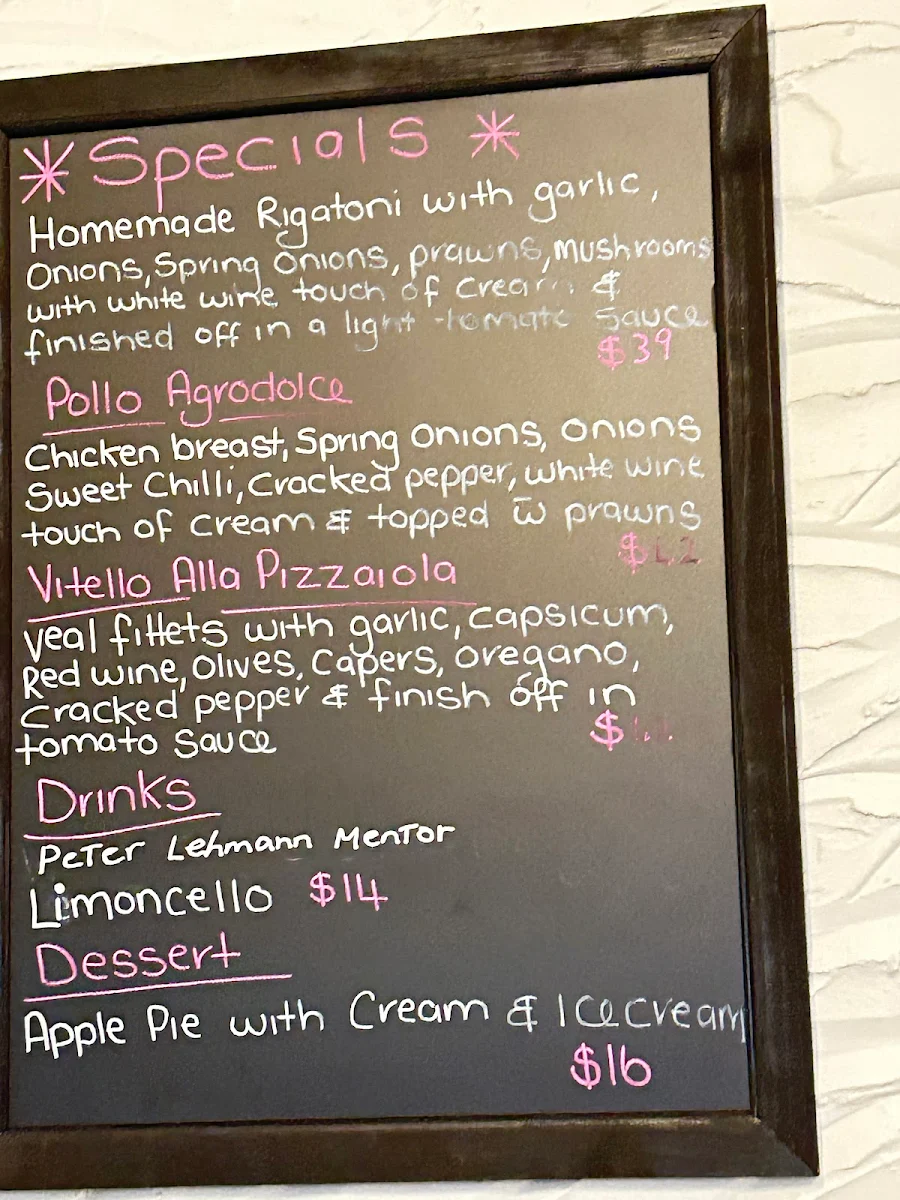 * Specials *
Homemade Rigatoni with garlic,
Onions, Spring Onions, prawns, Mushrooms
with white wine touch of cream &
finished off in a light tomato Sauce
$39
Pollo Agrodolce
Chicken breast, Spring Onions, onions
Sweet Chilli, Cracked pepper, white wine
touch of cream & topped w̄ prawns
$
Vitello Alla Pizzaiola
veal fillets with garlic, capsicum,
Red wine, Olives, Capers, oregano,
Cracked pepper & finish off in
$
tomato Sauce
Drinks
Peter Lehmann Mentor
Limoncello $14
Dessert
Apple Pie with Cream & Icecream
$16